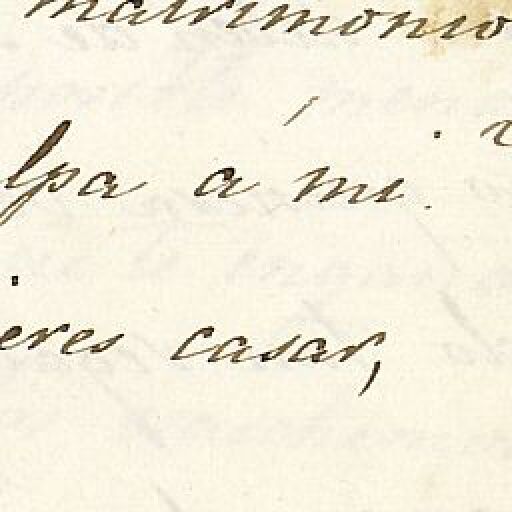 matrimonio
lpa á mi.
eres casar,